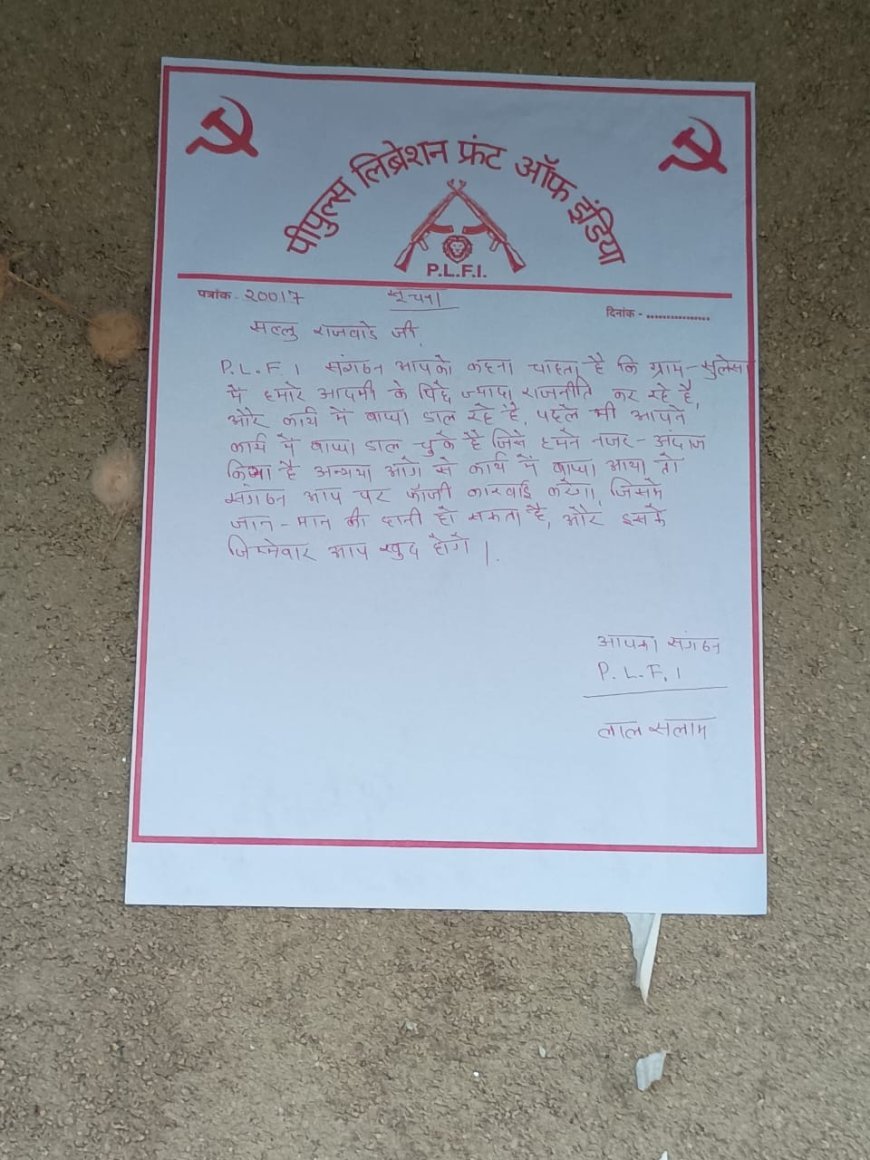 पीपुल्स लिब्रेशन फ्रंट ऑफ इंडिया
P.L.F.I.
पत्रांक - 20017
सूचना
दिनांक - ................
राजवाडे जी,
P.L.F.I संगठन आपको कहना चाहता है कि ग्राम-सुलेसा
में हमारे आदमी के पिछे ज्यादा राजनीति कर रहे है,
और कार्य में बाधा डाल रहे है, पहले भी आपने
कार्य में बाधा डाल चुके है जिसे हमने नजर-अंदाज
किया है अन्यथा आगे से कार्य में बाधा आया तो
संगठन आप पर फौजी कारवाई करेगा, जिसमे
जान-मान की हानी हो सकता है, और इसके
जिम्मेवार आप खुद होंगे ।
आपका संगठन
P.L.F.I
लाल सलाम